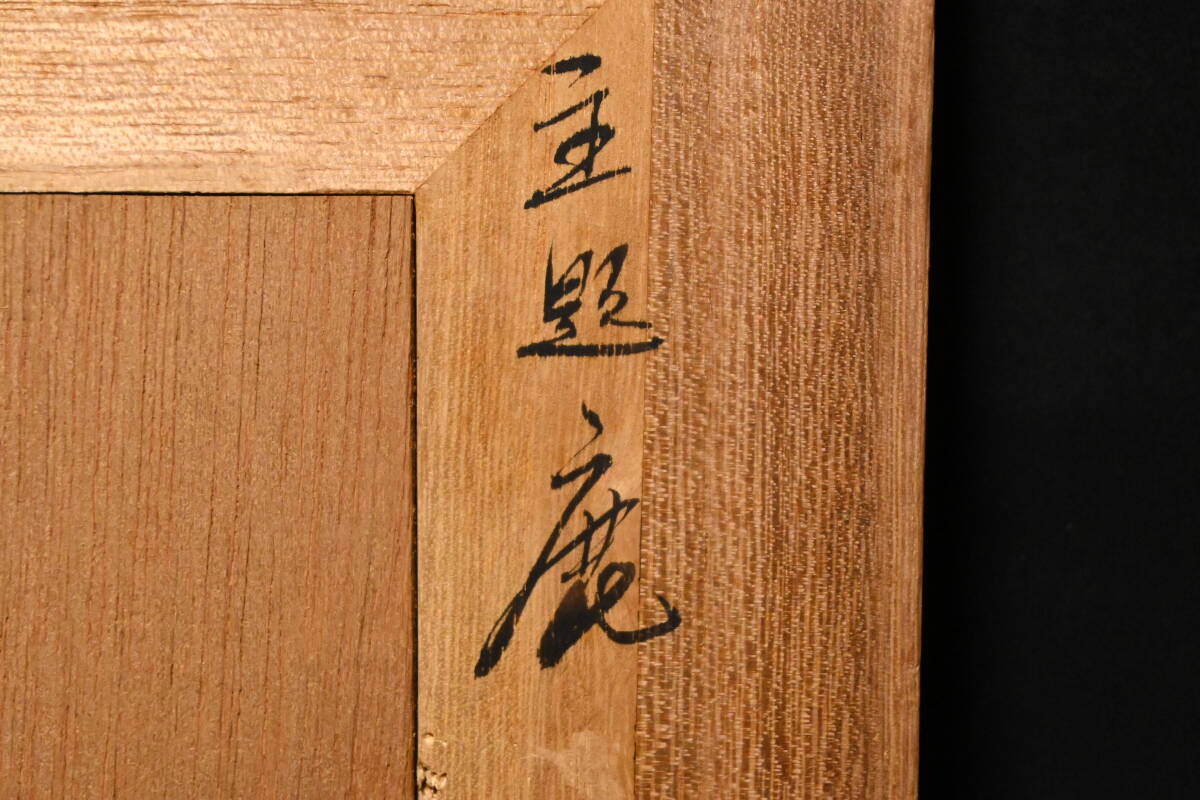 主題鹿